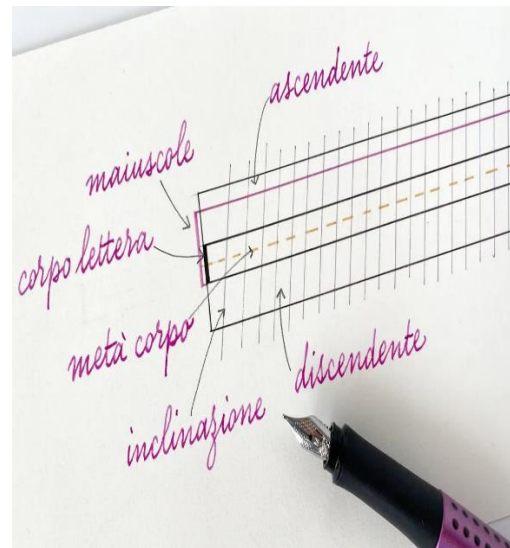 ascendente
maiuscole
corpo lettera
metà corpo
discendente
inclinazione